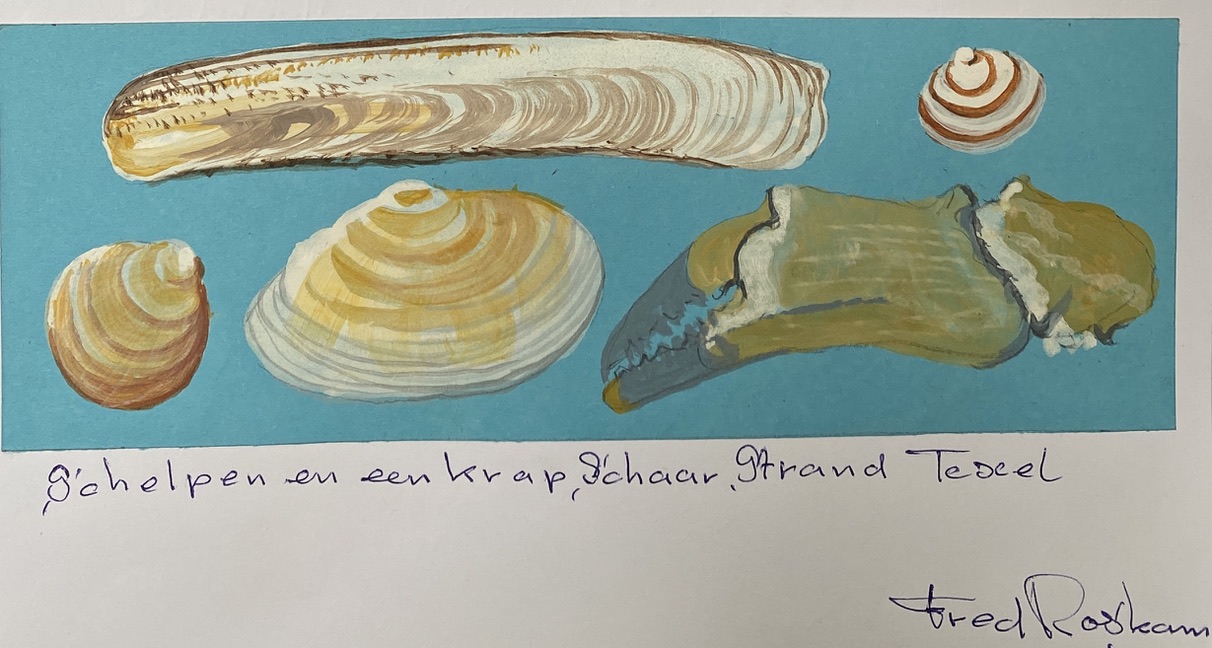 Schelpen en een krap, Schaar, Strand Texel
Fred Roskam